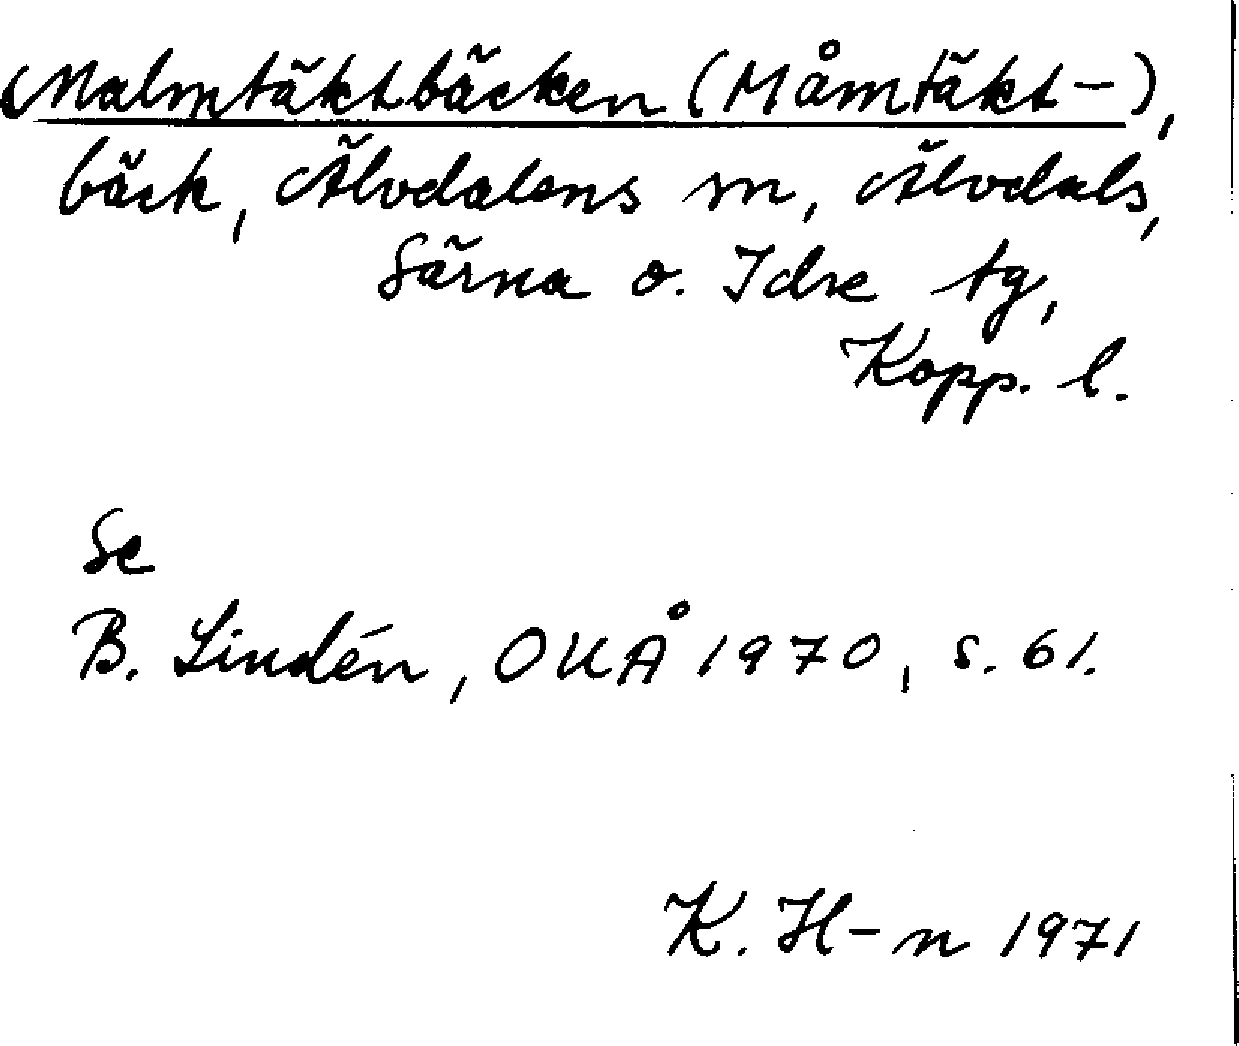 Malmtäktbäcken (Måmtäkt-),
bäck, Älvdalens sn, Älvdals,
Särna o. Idre tg,
Kopp. l.
Se
B. Lindén, OUÅ 1970, s. 61.
K. H-n 1971